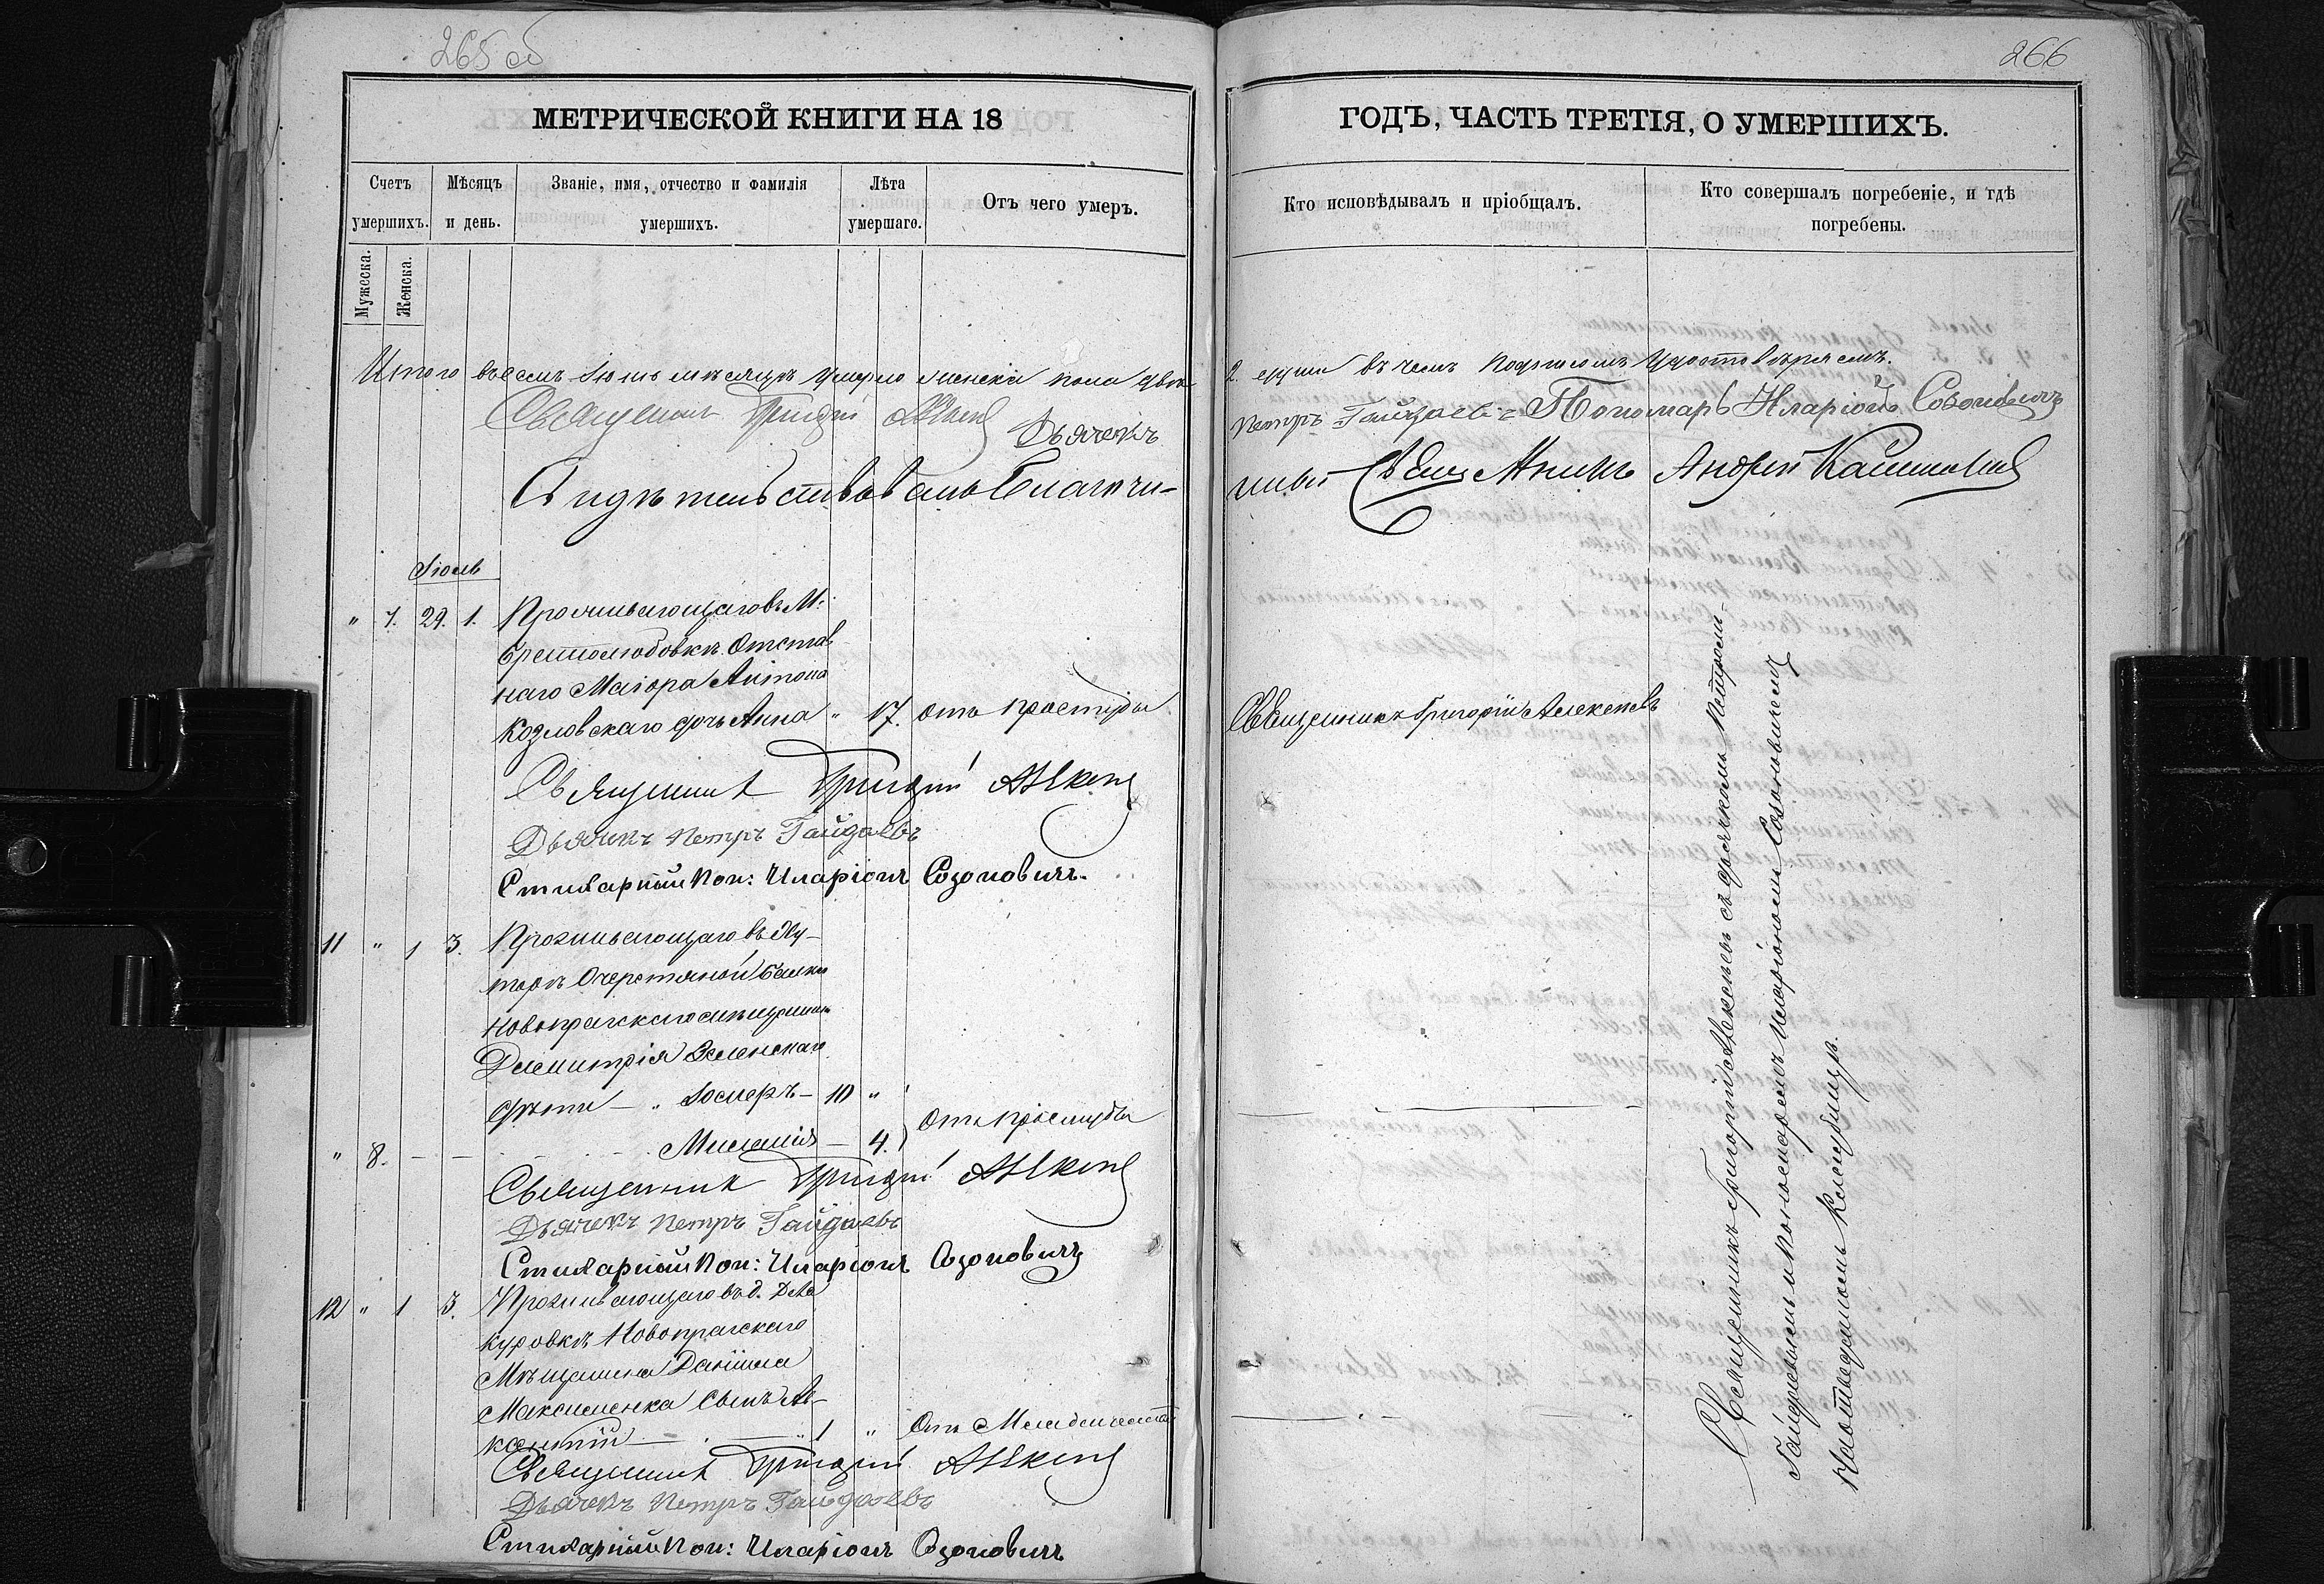 265 об
МЕТРИЧЕСКОЙ КНИГИ НА 18
Счетъ умершихъ.
Мужеска.
Женска.
Мѣсяцъ и день.
Званіе, имя, отчество и фамилія умершихъ.
Лѣта умершаго.
Отъ чего умеръ.
Итого въ семъ Іюнь мѣсяцѣ умерло женска пола двѣ
Священникъ Григорій
Дьячекъ
Свидѣтельствовалъ Благочи-
Іюль
" 7. 29. 1. Проживающаго въ М:
Братолюбовкѣ Отстав
наго Маіора Антона
Козловскаго дочь Анна " 17. отъ простуды
Священникъ Григорій
Дьячекъ Петръ Гайдаевъ
Стихарный Пон: Иларіонъ Созоновичъ.
11 " 1 3. Проживающаго въ Ху-
торѣ Очеретяной Балки
Новопражскаго мѣщанина
Димитрія Зеленскаго
дѣти - " - 10 "
" 8. - - - Меланія - 4. Отъ простуды
Священникъ Григорій
Дьячекъ Петръ Гайдаевъ
Стихарный Пон: Иларіонъ Созоновичъ
12 " 1 3. Проживающаго въ д.
куровкѣ Новопражскаго
Мѣщанина Даніила
Максименка сынъ Ав-
ксентій - " 1 " Отъ Младенческой
Священникъ Григорій
Дьячекъ Петръ Гайдаевъ
Стихарный Пон: Иларіонъ Созоновичъ
266
ГОДЪ, ЧАСТЬ ТРЕТІЯ, О УМЕРШИХЪ.
Кто исповѣдывалъ и пріобщалъ.
Кто совершалъ погребеніе, и гдѣ погребены.
2. души въ чемъ подписомъ удостовѣряемъ.
Петръ Гайдаевъ Пономарь Иларіонъ Созоновичъ
ный Священникъ Андрей
Священникъ Григорій Алексѣевъ
Священникъ Григорій Алексѣевъ съ дьячкомъ Петромъ
Гайдаевымъ и пономаремъ Иларіономъ Созоновичемъ
на отведенномъ кладбищѣ.